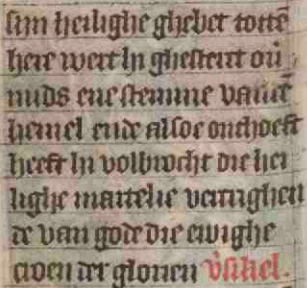 sijn heilighe ghebet totte
here wert hi ghesterct ou
mids ene stemme vand
hemel ende alsoe onthoeft
heeft hi volbrocht die hei
lighe martelie vercrighen
de van gode die ewighe
croen der glorien v̕sikel.